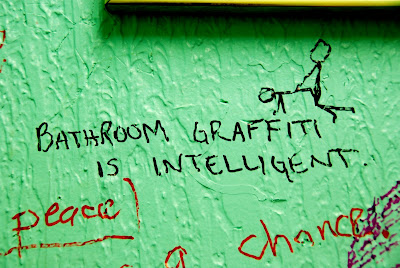 BATHROOM GRAFFITI
IS INTELLIGENT.
peace
a chance.